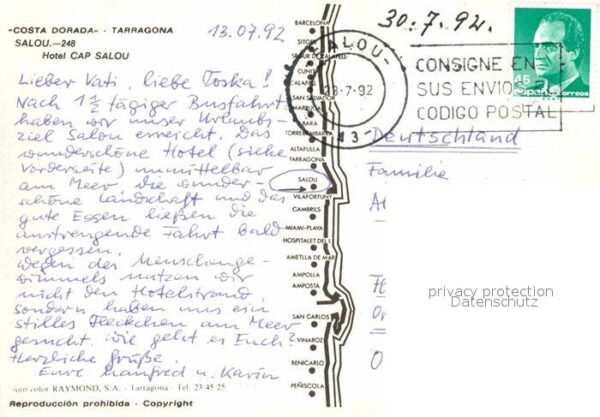 «COSTA DORADA» - TARRAGONA
SALOU.—248
Hotel CAP SALOU
13.07.92
Lieber Vati, liebe Toska!
Nach 1½ tägiger Busfahrt
haben wir unser Urlaubs-
ziel Salou erreicht. Das
wunderschöne Hotel (siehe
Vorderseite) unmittelbar
am Meer die wunder-
schöne Landschaft und das
gute Essen ließen die
anstrengende Fahrt bald
vergessen.
Wegen des Menschenge-
wimmels nutzen wir
nicht den Hotelstrand,
sondern haben uns ein
stilles Fleckchen am Meer
gesucht. Wie geht es Euch?
Herzliche Grüße.
Eure Manfred u. Karin
color RAYMOND, S.A. - Tarragona - Tel. 23 45 25
Reproducción prohibida - Copyright
BARCELONA
SITGES
CUNIT
CALAFELL
SAN SALVADOR
BARA
TORREDEMBARRA
ALTAFULLA
TARRAGONA
SALOU
VILAFORTUNY
CAMBRILS
MIAMI-PLAYA
HOSPITALET DEL I.
AMETLLA DE MAR
AMPOLLA
AMPOSTA
SAN CARLOS
VINAROZ
BENICARLO
PEÑISCOLA
30.7.92.
SALOU
-7-92
43
CONSIGNE EN
SUS ENVIOS EL
CODIGO POSTAL
45
España
correos
Deutschland
Familie
privacy protection
Datenschutz